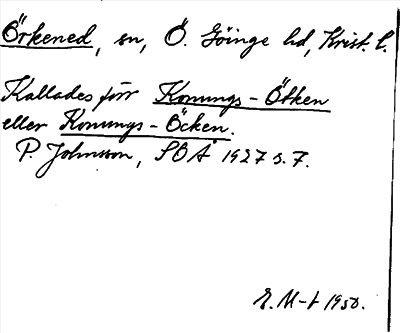 Örkened, sn, Ö. Göinge hd, Krist. l.
Kallades förr Konungs-Ötken
eller Konungs-Öcken.
P. Johnsson, SOÅ 1927 s. 7.
E. M-t 1950.